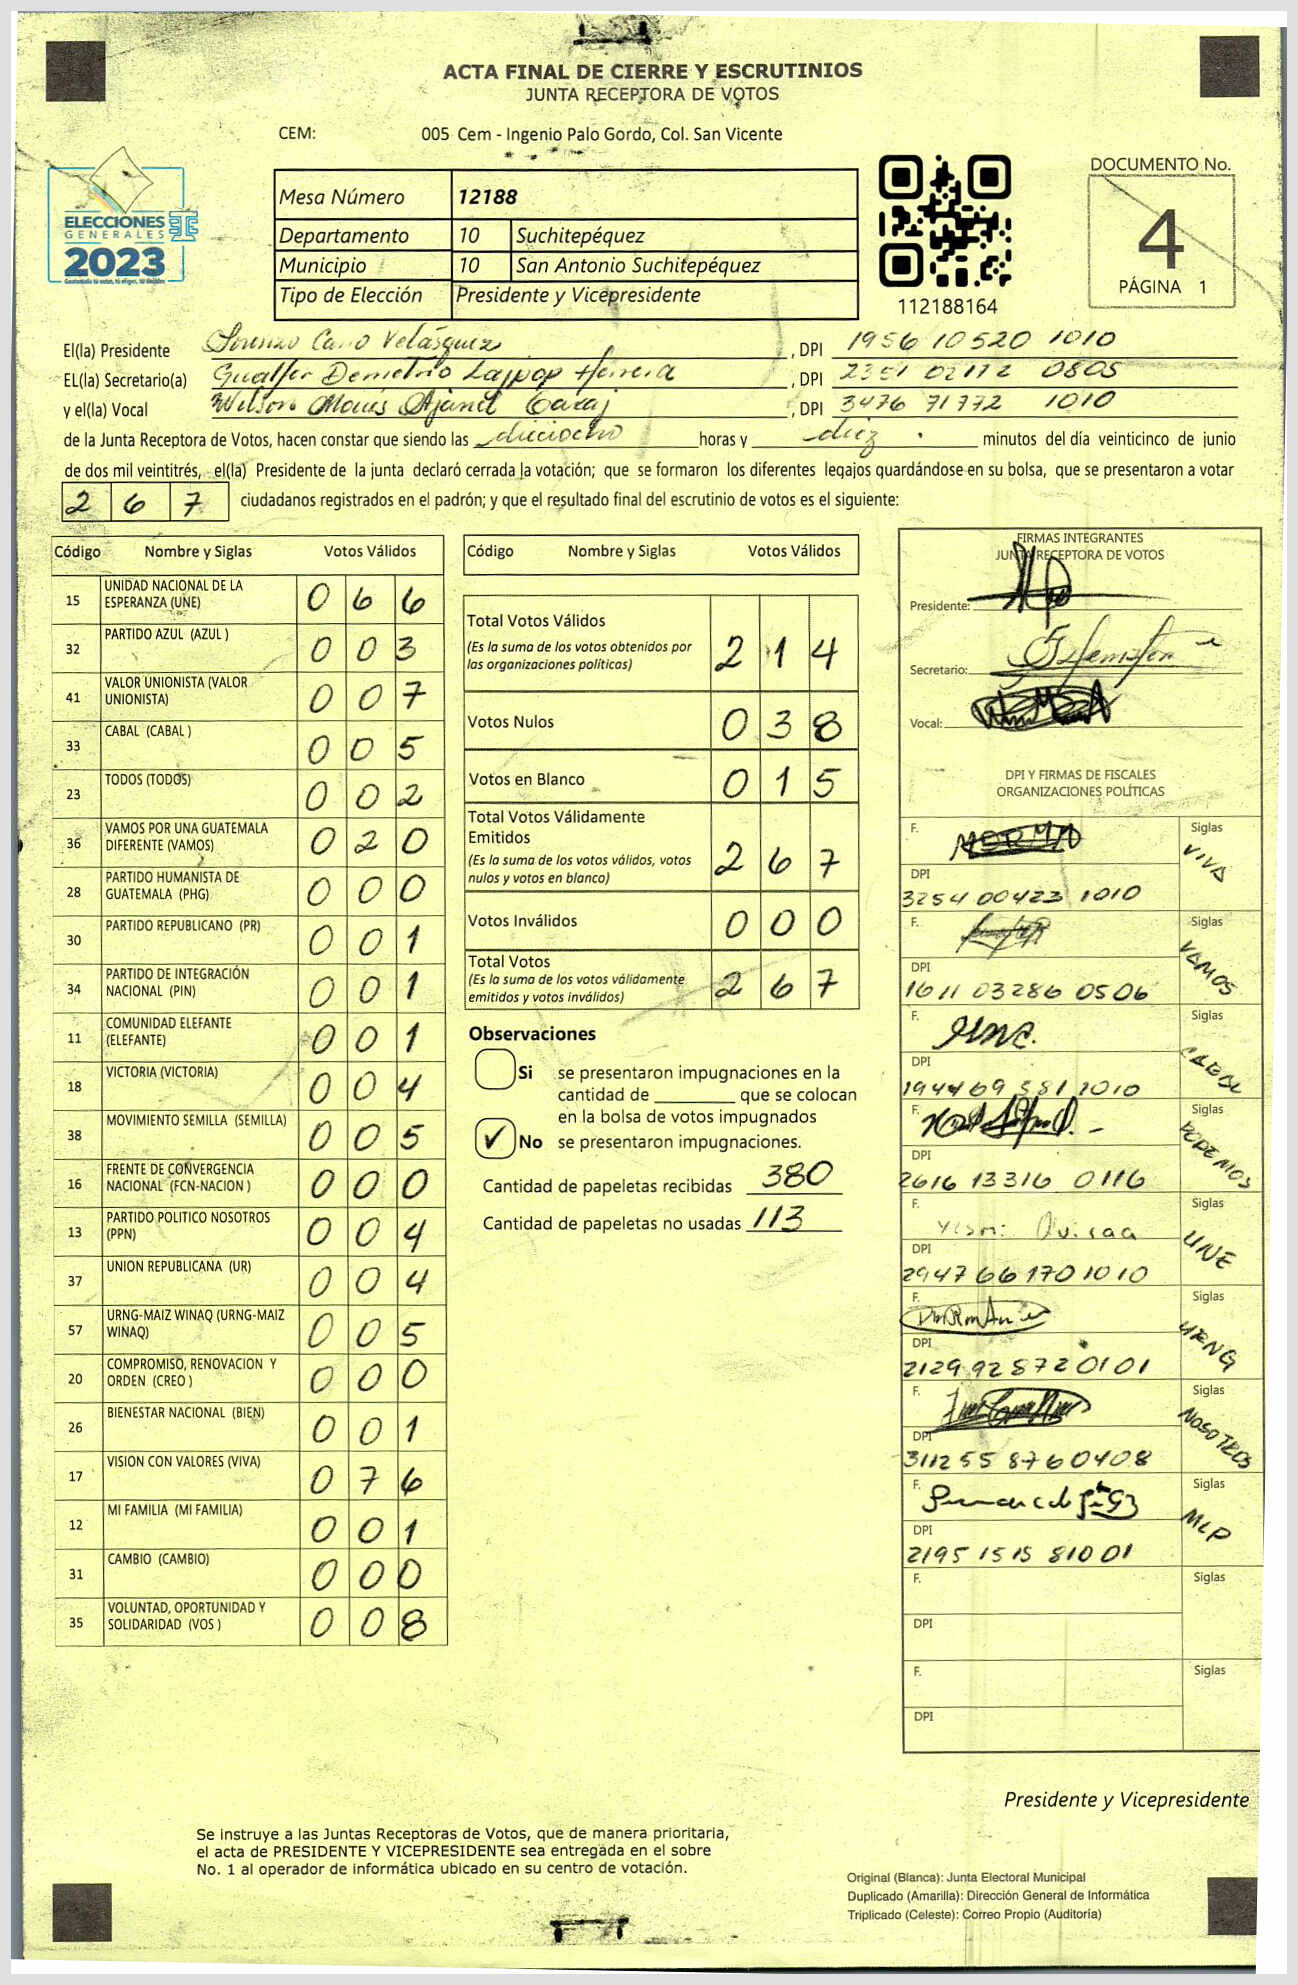 ACTA FINAL DE CIERRE Y ESCRUTINIOS
JUNTA RECEPTORA DE VOTOS
CEM: 005 Cem - Ingenio Palo Gordo, Col. San Vicente
ELECCIONES
GENERALES
2023
Mesa Número 12188
Departamento 10 Suchitepéquez
Municipio 10 San Antonio Suchitepéquez
Tipo de Elección Presidente y Vicepresidente
112188164
DOCUMENTO No.
4
PÁGINA 1
El(la) Presidente Lorenzo Cano Velásquez, DPI 1956 10520 1010
EL(la) Secretario(a) Gualfer Demetrio Lajpop Herrera, DPI 2351 02172 0805
y el(la) Vocal Wilson Ajanel, DPI 3476 71772 1010
de la Junta Receptora de Votos, hacen constar que siendo las dieciocho horas y diez minutos del día veinticinco de junio
de dos mil veintitrés, el(la) Presidente de la junta declaró cerrada la votación; que se formaron los diferentes legajos quardándose en su bolsa, que se presentaron a votar
267 ciudadanos registrados en el padrón; y que el resultado final del escrutinio de votos es el siguiente:
Código Nombre y Siglas Votos Válidos
15 UNIDAD NACIONAL DE LA ESPERANZA (UNE) 066
32 PARTIDO AZUL (AZUL ) 003
41 VALOR UNIONISTA (VALOR UNIONISTA) 007
33 CABAL (CABAL ) 005
23 TODOS (TODOS) 002
36 VAMOS POR UNA GUATEMALA DIFERENTE (VAMOS) 020
28 PARTIDO HUMANISTA DE GUATEMALA (PHG) 000
30 PARTIDO REPUBLICANO (PR) 001
34 PARTIDO DE INTEGRACIÓN NACIONAL (PIN) 001
11 COMUNIDAD ELEFANTE (ELEFANTE) 001
18 VICTORIA (VICTORIA) 004
38 MOVIMIENTO SEMILLA (SEMILLA) 005
16 FRENTE DE CONVERGENCIA NACIONAL (FCN-NACION ) 000
13 PARTIDO POLITICO NOSOTROS (PPN) 004
37 UNION REPUBLICANA (UR) 004
57 URNG-MAIZ WINAQ (URNG-MAIZ WINAQ) 005
20 COMPROMISO, RENOVACION Y ORDEN (CREO ) 000
26 BIENESTAR NACIONAL (BIEN) 001
17 VISION CON VALORES (VIVA) 076
12 MI FAMILIA (MI FAMILIA) 001
31 CAMBIO (CAMBIO) 000
35 VOLUNTAD, OPORTUNIDAD Y SOLIDARIDAD (VOS ) 008
Código Nombre y Siglas Votos Válidos
Total Votos Válidos 214
(Es la suma de los votos obtenidos por
las organizaciones políticas)
Votos Nulos 038
Votos en Blanco 015
Total Votos Válidamente
Emitidos 267
(Es la suma de los votos válidos, votos
nulos y votos en blanco)
Votos Inválidos 000
Total Votos 267
(Es la suma de los votos válidamente
emitidos y votos inválidos)
Observaciones
Si se presentaron impugnaciones en la
cantidad de ________ que se colocan
en la bolsa de votos impugnados
✓ No se presentaron impugnaciones.
Cantidad de papeletas recibidas 380
Cantidad de papeletas no usadas 113
FIRMAS INTEGRANTES
JUNTA RECEPTORA DE VOTOS
Presidente:
Secretario:
Vocal:
DPI Y FIRMAS DE FISCALES
ORGANIZACIONES POLÍTICAS
F. Siglas VIVA
DPI 3254 00423 1010
F. Siglas VAMOS
DPI 1611 03286 0506
F. Siglas CABAL
DPI 1010
F. Siglas PODEMOS
DPI 2616 13316 0116
F. Siglas UNE
DPI 2947 66170 1010
F. Siglas URNG
DPI 2129 92872 0101
F. Siglas NOSOTROS
DPI 3112 55 876 0408
F. Siglas MLP
DPI 2195 1515 81001
F. Siglas
DPI
F. Siglas
DPI
Presidente y Vicepresidente
Se instruye a las Juntas Receptoras de Votos, que de manera prioritaria,
el acta de PRESIDENTE Y VICEPRESIDENTE sea entregada en el sobre
No. 1 al operador de informática ubicado en su centro de votación.
Original (Blanca): Junta Electoral Municipal
Duplicado (Amarilla): Dirección General de Informática
Triplicado (Celeste): Correo Propio (Auditoría)